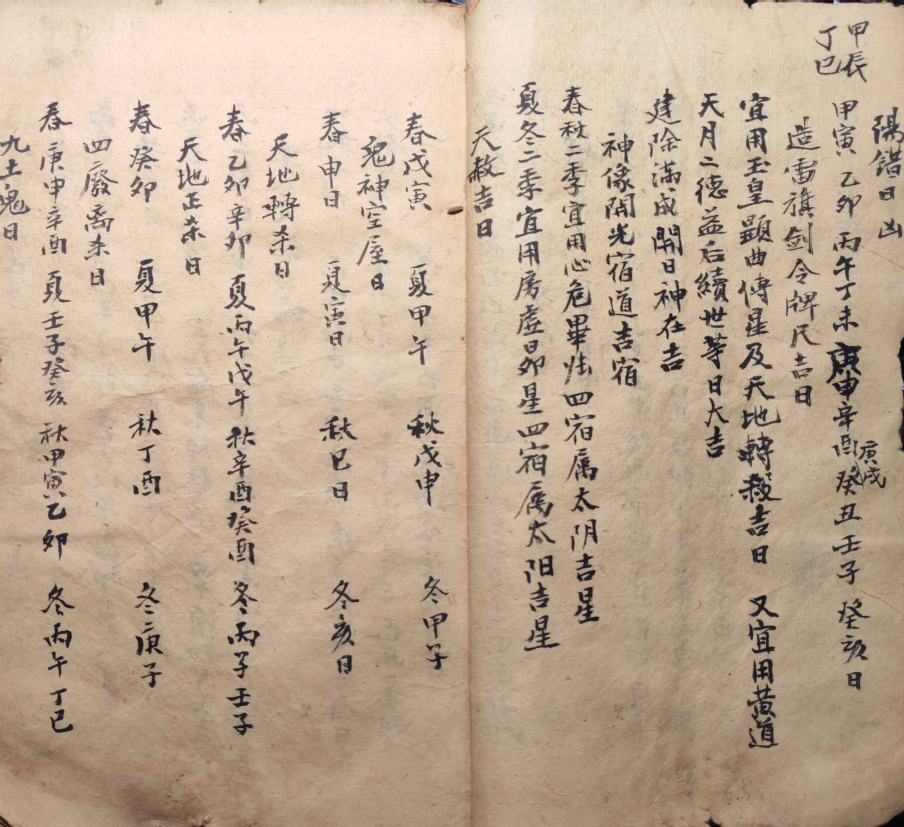 陽錯日凶
甲辰
丁巳
甲寅 乙卯 丙午丁未庚申辛酉癸丑壬子 癸亥日
庚戌
造雷旗劍令牌尺吉日
宜用玉皇顕曲傳星及天地轉殺吉日 又宜用黄道
天月二德益后續世等日大吉
建除滿成開日神在吉
神像開光宿道吉宿
春秋二季宜用心危畢张四宿属太阴吉星
夏冬二季宜用房虚昴星四宿属太阳吉星
天赦吉日
春戊寅 夏甲午 秋戊申 冬甲子
鬼神空屋日
春申日 夏寅日 秋巳日 冬亥日
天地轉杀日
春乙卯辛卯 夏丙午戊午 秋辛酉癸酉 冬丙子壬子
天地正杀日
春癸卯 夏甲午 秋丁酉 冬庚子
四廢离杀日
春庚申辛酉 夏壬子癸亥 秋甲寅乙卯 冬丙午丁巳
九土鬼日